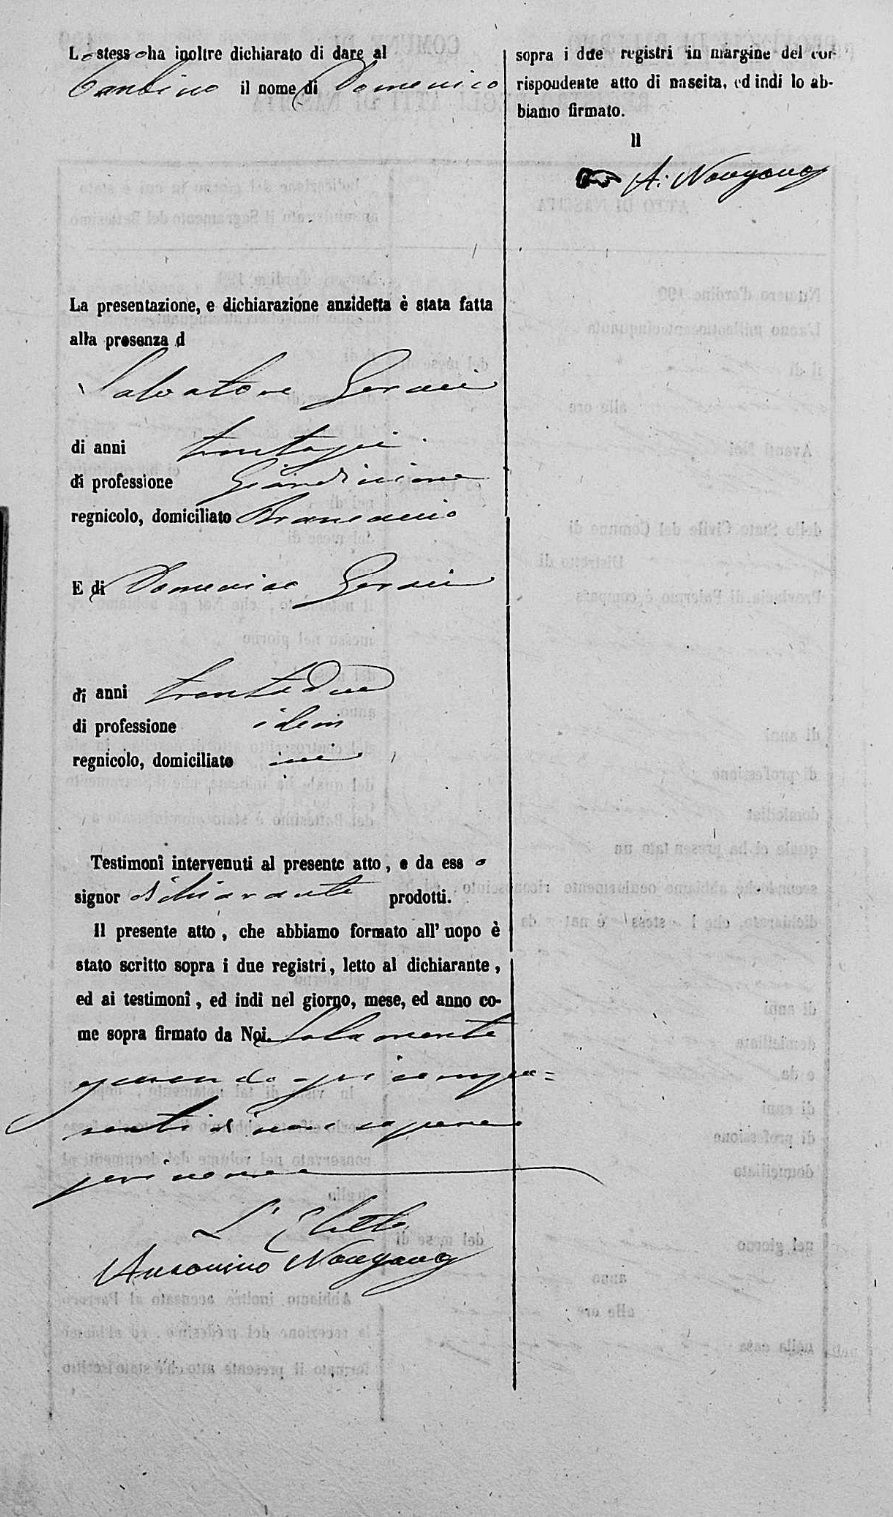 Lo stesso ha inoltre dichiarato di dare al
Bambino il nome di Domenico
La presentazione, e dichiarazione anzidetta è stata fatta
alla presenza d
Salvatore Geraci
di anni
di professione Giardiniere
regnicolo, domiciliato
E di Domenico Geraci
di anni trentadue
di professione idem
regnicolo, domiciliato ivi
Testimonî intervenuti al presente atto, e da esso
signor dichiarante prodotti.
Il presente atto, che abbiamo formato all' uopo è
stato scritto sopra i due registri, letto al dichiarante,
ed ai testimonî, ed indi nel giorno, mese, ed anno co-
me sopra firmato da Noi. Solamente
avendo gli compa=
renti di non sapere
scrivere
L' Eletto
Antonino
sopra i due registri in margine del cor-
rispondente atto di nascita, ed indi lo ab-
biamo firmato.
Il
A.